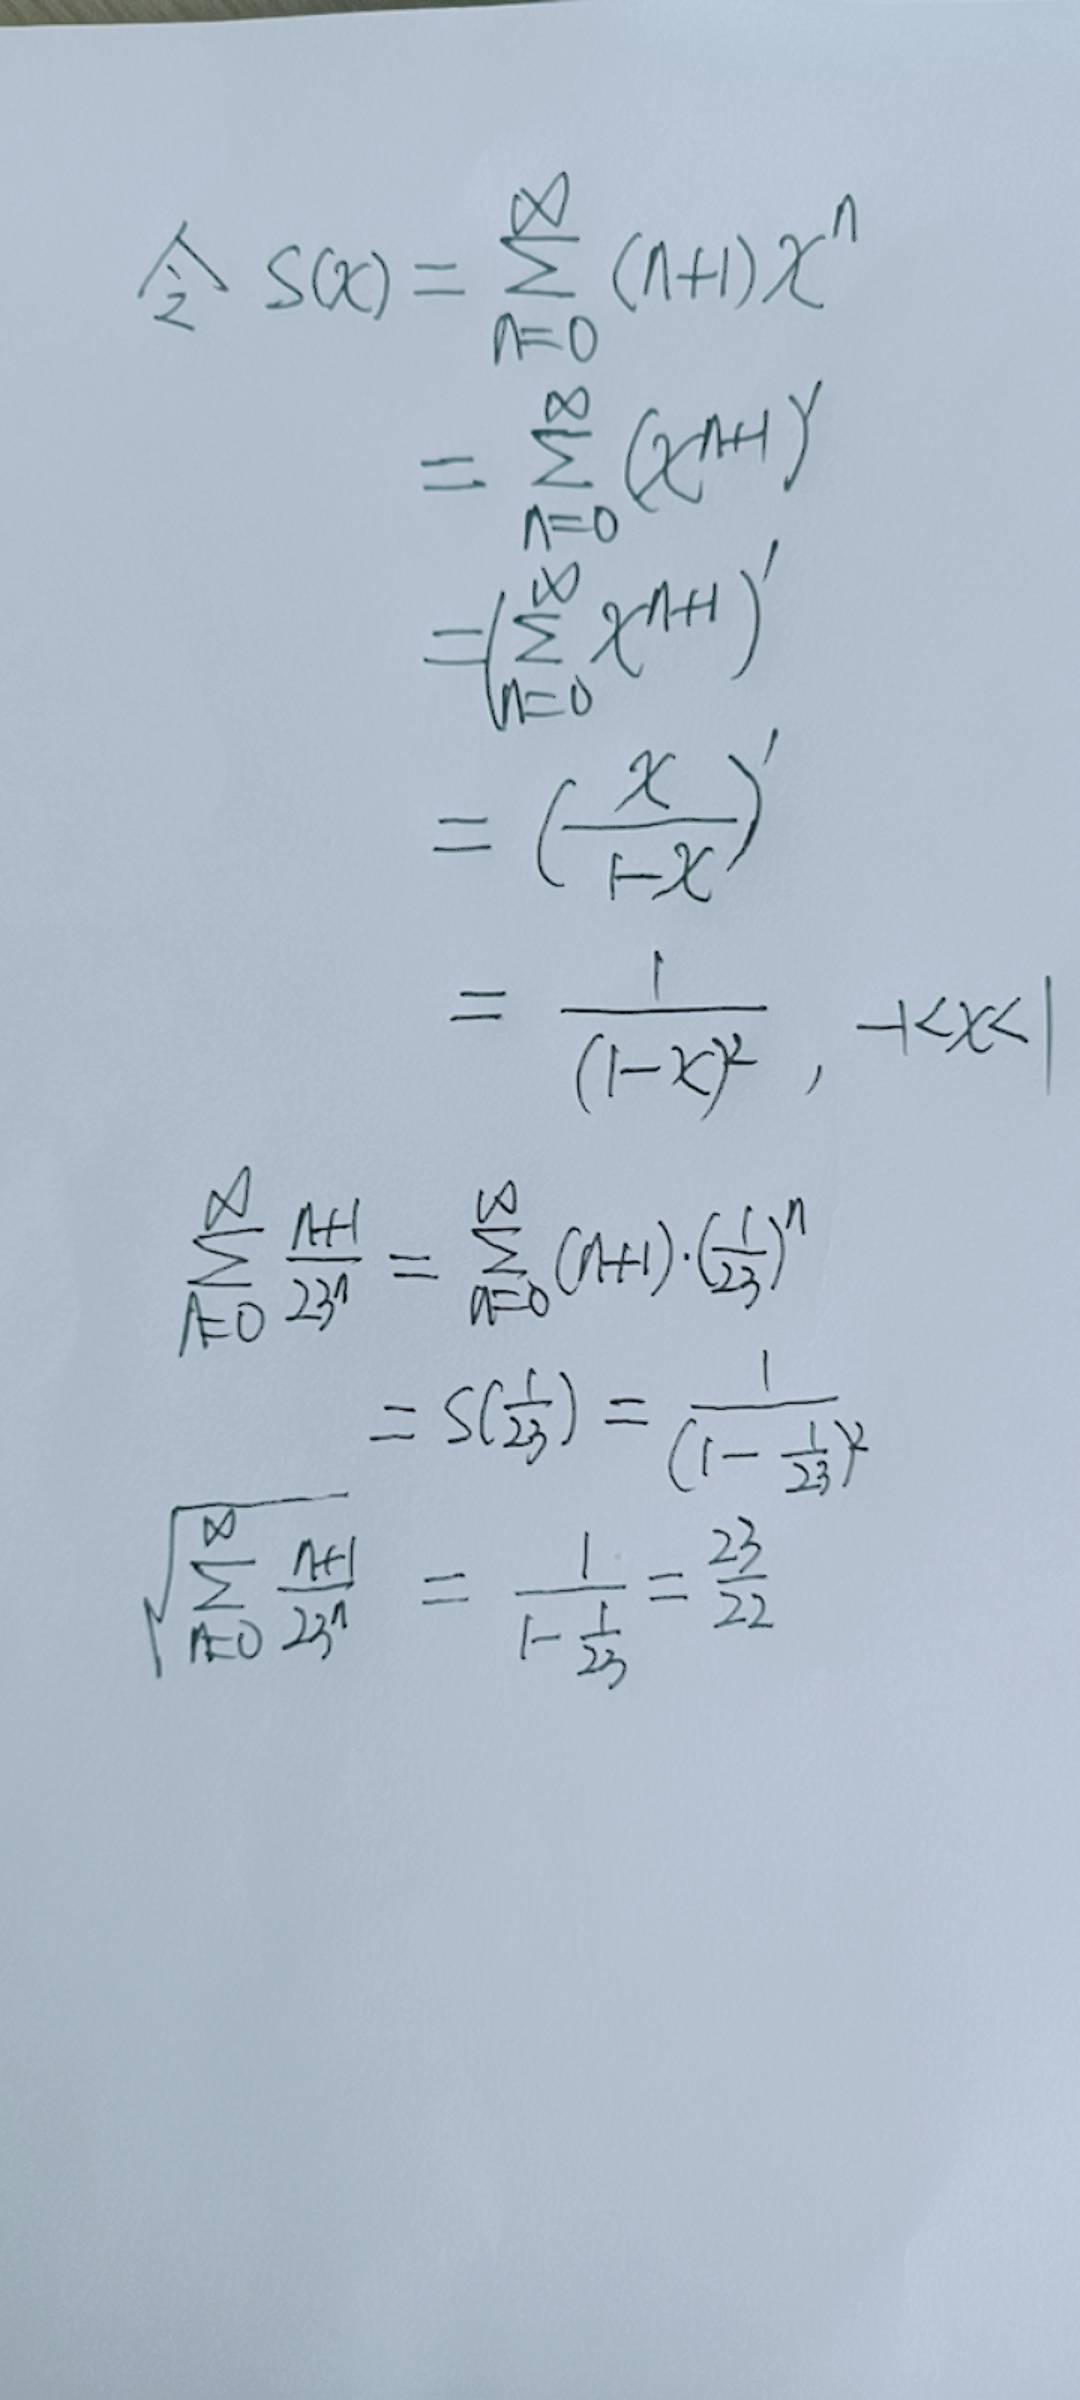 令 S(x) = ∑_{n=0}^{∞} (n+1) x^n
= ∑_{n=0}^{∞} (x^{n+1})'
= (∑_{n=0}^{∞} x^{n+1})'
= (x/(1-x))'
= 1/(1-x)^2 , -1<x<1
∑_{n=0}^{∞} (n+1)/23^n = ∑_{n=0}^{∞} (n+1)·(1/23)^n
= S(1/23) = 1/(1 - 1/23)^2
√(∑_{n=0}^{∞} (n+1)/23^n) = 1/(1 - 1/23) = 23/22